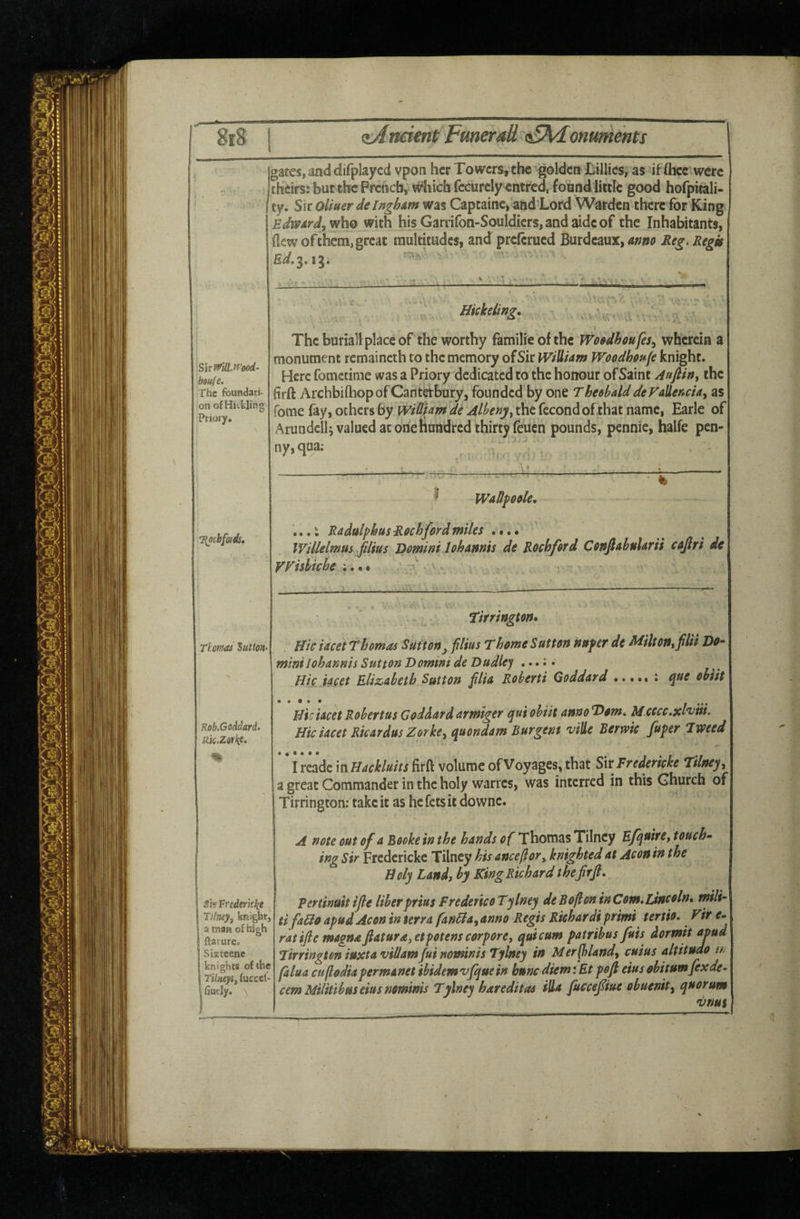 818
Ancient Funerall Monuments
gates, and diſplayed vpon her Towers, the golden Lillies, as if ſhee were
theirs: but the French, which ſecurely entred, found little good hoſpitali-
ty. Sir Oliuer de Ingham was Captaine, and Lord Warden there for King
Edward, who with his Garriſon-Souldiers, and aide of the Inhabitants,
ſlew of them, great multitudes, and preſerued Burdeaux, anno Reg. Regis
Ed. 3. 13.
Hickeling.
Sir Will. Wood-
houſe.
The foundati-
on of Hickling
Priory.
The buriall place of the worthy familie of the Woodhouſes, wherein a
monument remaineth to the memory of Sir William Woodhouſe knight.
Here ſometime was a Priory dedicated to the honour of Saint Auſtin, the
firſt Archbiſhop of Canterbury, founded by one Theobald de Vallencia, as
ſome ſay, others by William de Albeny, the ſecond of that name, Earle of
Arundell; valued at one hundred thirty ſeuen pounds, pennie, halfe pen-
ny, qua:
Wallpoole.
Rochfords.
.... Radulphus Rochford miles ....
Willelmus filius Domini Iohannis de Rochford Conſtabularii caſtri de
VVisbiche ....
Tirrington.
Thomas Sutton.
Hic iacet Thomas Sutton, filius Thome Sutton nuper de Milton, filii Do-
mini Iohannis Sutton Domini de Dudley ....
Hic iacet Elizabeth Sutton filia Roberti Goddard ..... : que obiit
.....
Rob. Goddard.
Ric. Zorke.
Hic iacet Robertus Goddard armiger qui obiit anno Dom. Mcccc.xlviii.
Hic iacet Ricardus Zorke, quondam Burgens ville Berwic ſuper Tweed
......
I reade in Hackluits firſt volume of Voyages, that Sir Fredericke Tilney,
a great Commander in the holy warres, was interred in this Church of
Tirrington: take it as he ſets it downe.
A note out of a Booke in the hands of Thomas Tilney Eſquire, touch-
ing Sir Fredericke Tilney his anceſtor, knighted at Acon in the
Holy Land, by King Richard the firſt.
Sir Fredericke
Tilney, knight,
a man of high
ſtature.
Sixteene
knights of the
Tilneys, ſucceſ-
ſiuely.
Pertinuit iſte liber prius Frederico Tylney de Boſton in Com. Lincoln. mili-
ti facto apud Acon in terra ſancta, anno Regis Richardi primi tertio. Vir e-
rat iſte magna ſtatura, et potens corpore, qui cum patribus ſuis dormit apud
Tirrington iuxta villam ſui nominis Tylney in Merſhland, cuius altitudo in
ſalua cuſtodia permanet ibidem vſque in hunc diem: Et poſt eius obitum ſexde-
cem Militibus eius nominis Tylney hæreditas illa ſucceſſiue obuenit, quorum
vnus